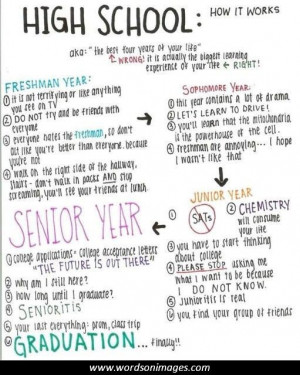 HIGH SCHOOL: HOW IT WORKS
aka: "the best four years of your life"
WRONG! it is actually the biggest learning
experience of your life RIGHT!
FRESHMAN YEAR:
① it is not terrifying or like anything
you see on TV
② DO NOT try and be friends with
everyone
③ everyone hates the freshman, so don't
act like you're better than everyone. because
you're not
④ walk on the right side of the hallway.
stairs - don't walk in packs AND stop
screaming, you'll see your friends at lunch.
SOPHOMORE YEAR:
① this year contains a lot of drama.
② LET'S LEARN TO DRIVE!
③ you'll learn that the mitochondria
is the powerhouse of the cell.
④ freshman are annoying... I hope
I wasn't like that
JUNIOR YEAR
① SATs
② CHEMISTRY
will consume
your life
③ you have to start thinking
about college
④ PLEASE STOP asking me
what I want to be because
I DO NOT KNOW.
⑤ Junioritis is real
⑥ you find your group of friends
SENIOR YEAR
① college applications + college acceptance letters
"THE FUTURE IS OUT THERE"
② why am I still here?
③ how long until I graduate?
④ SENIORITIS
⑤ your last everything: prom, class trip
⑥ GRADUATION... finally!!
www.wordsonimages.com